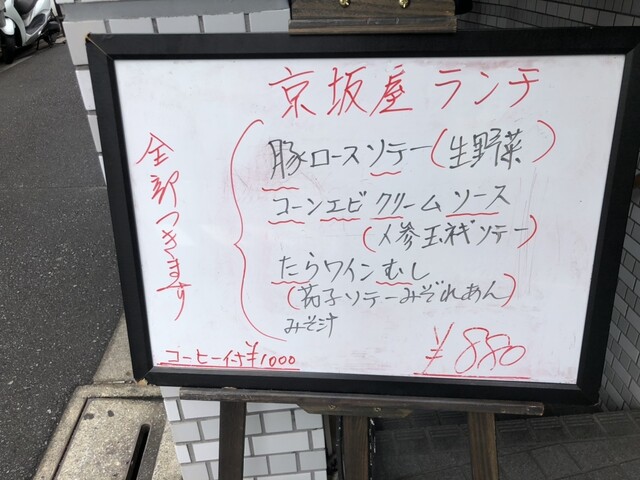 京坂屋 ランチ
全部つきます
豚ロースソテー(生野菜)
コーンエビクリームソース
(人参玉ネギソテー)
たらワインむし
(茄子ソテーみぞれあん)
みそ汁
コーヒー付¥1000
¥880